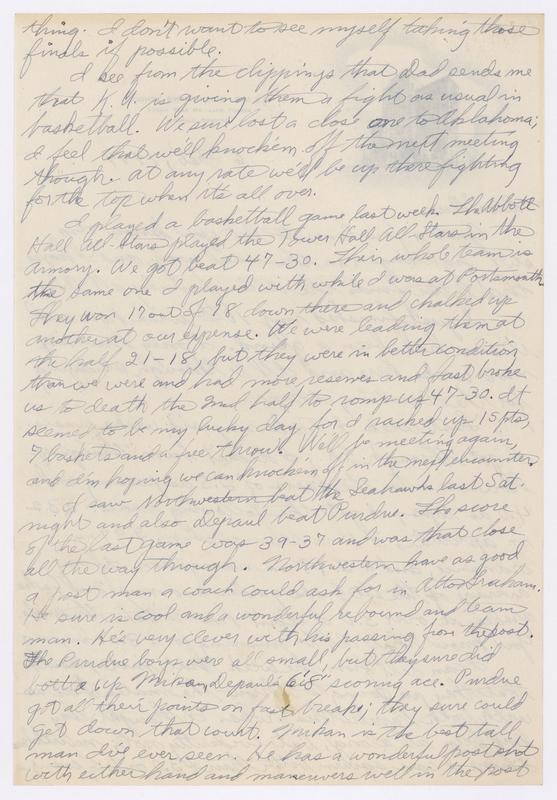 thing. I don't want to see myself taking those
finals if possible.
I see from the clippings that Dad sends me
that K.U. is giving them a fight as usual in
basketball. We sure lost a close one to Oklahoma;
I feel that we'll knock'em off the next meeting
though. At any rate we'll be up there fighting
for the top when it's all over.
I played a basketball game last week. The Abbott
Hall All-Stars played the Tower Hall All-Stars in the
Armory. We got beat 47-30. Their whole team is
the same one I played with while I was at Portsmouth.
They won 17 out of 18 down there and chalked up
another at our expense. We were leading them at
the half 21-18, but they were in better condition
than we were and had more reserves and fast broke
us to death the 2nd half to romp us 47-30. It
seemed to be my lucky day for I racked up 15 pts,
7 baskets and a free throw. We'll be meeting again,
and I'm hoping we can knock'em off in the next encounter.
I saw Northwestern beat the Seahawks last Sat.
night and also Depaul beat Purdue. The score
of the last game was 39-37 and was that close
all the way through. Northwestern have as good
a post man a coach could ask for in Otto Graham.
He sure is cool and a wonderful rebound and team
man. He's very clever with his passing from the post.
The Purdue boys were all small, but they sure did
bottle up Mikan, Depaul's 6'8" scoring ace. Purdue
got all their points on fast breaks; they sure could
get down that court. Mikan is the best tall
man I've ever seen. He has a wonderful post shot
with either hand and maneuvers well in the post